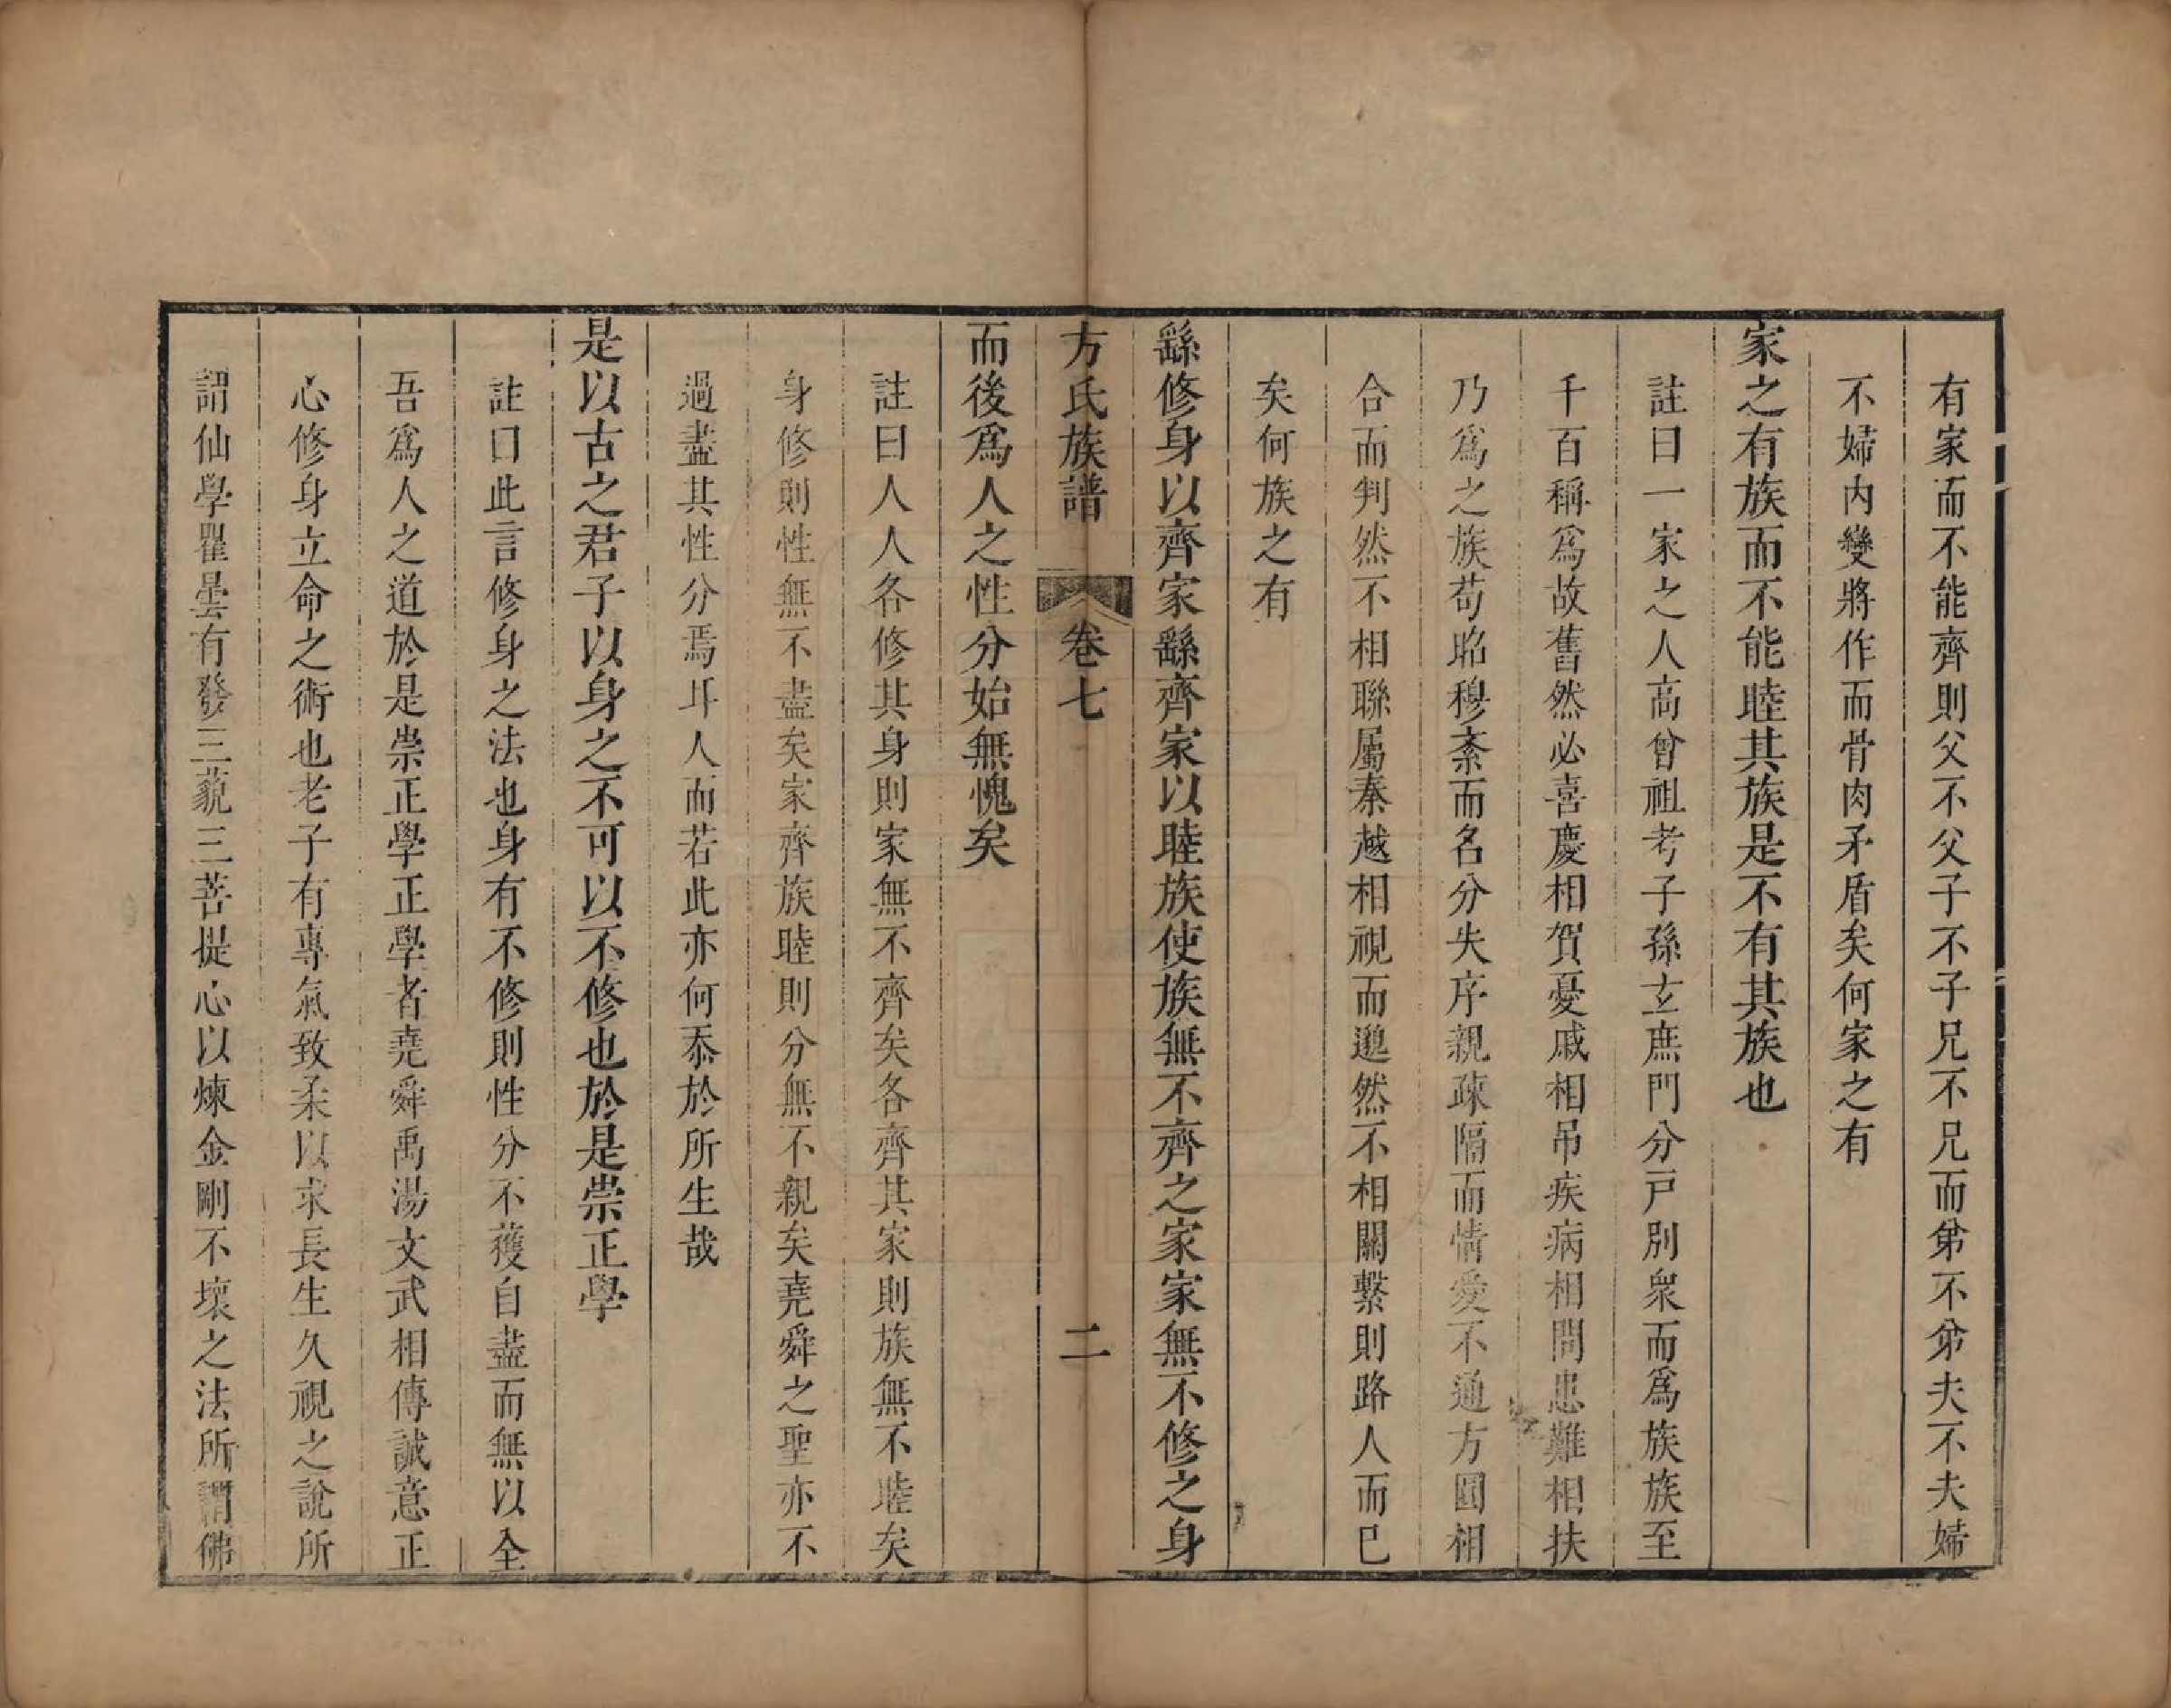 有家而不能齊則父不父子不子兄不兄而弟不弟夫不夫婦
不婦内變將作而骨肉矛盾矣何家之有
家之有族而不能睦其族是不有其族也
註曰一家之人高曾祖考子孫玄庶門分戸別衆而爲族族至
千百稱爲故舊然必喜慶相賀憂戚相吊疾病相問患難相扶
乃爲之族苟昭穆紊而名分失序親疎隔而情愛不通方圓相
合而判然不相聯屬秦越相視而邈然不相關繫則路人而已
矣何族之有
繇修身以齊家繇齊家以睦族使族無不齊之家家無不修之身
方氏族譜 卷七 二
而後爲人之性分始無愧矣
註曰人人各修其身則家無不齊矣各齊其家則族無不睦矣
身修則性無不盡矣家齊族睦則分無不親矣堯舜之聖亦不
過盡其性分焉耳人而若此亦何忝於所生哉
是以古之君子以身之不可以不修也於是崇正學
註曰此言修身之法也身有不修則性分不獲自盡而無以全
吾爲人之道於是崇正學正學者堯舜禹湯文武相傳誠意正
心修身立命之術也老子有專氣致柔以求長生久視之說所
謂仙學瞿曇有發三藐三菩提心以煉金剛不壞之法所謂佛